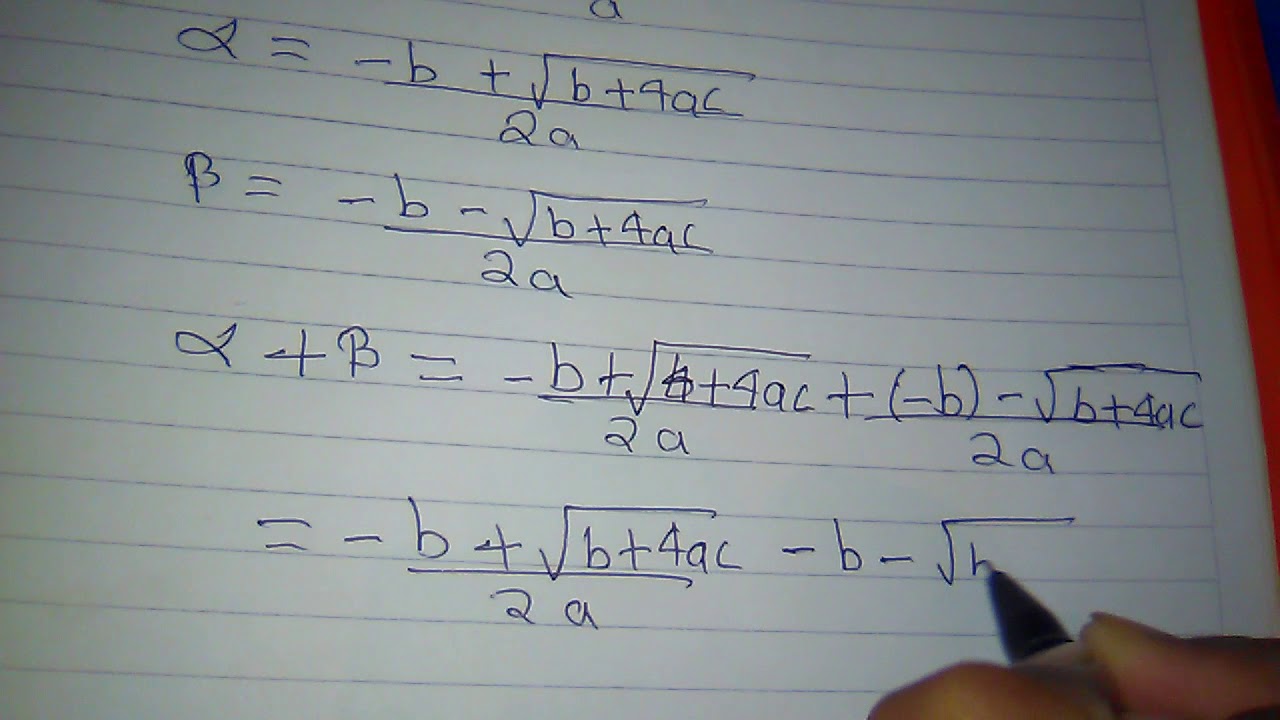 a
α = -b + √b+4ac
2a
β = -b - √b+4ac
2a
α + β = -b + √b+4ac + (-b) - √b+4ac
2a 2a
= -b + √b+4ac - b - √b
2a